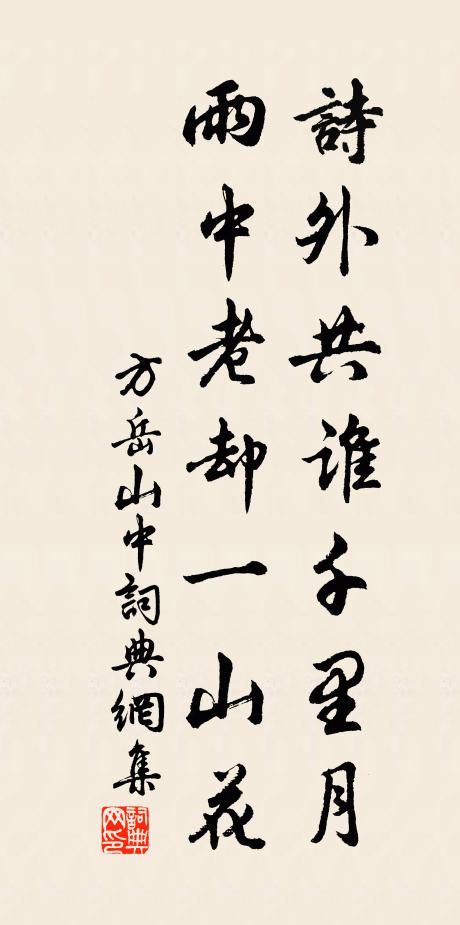 詩外共誰千里月
雨中老却一山花
方岳山中詞典網集
詞典网印